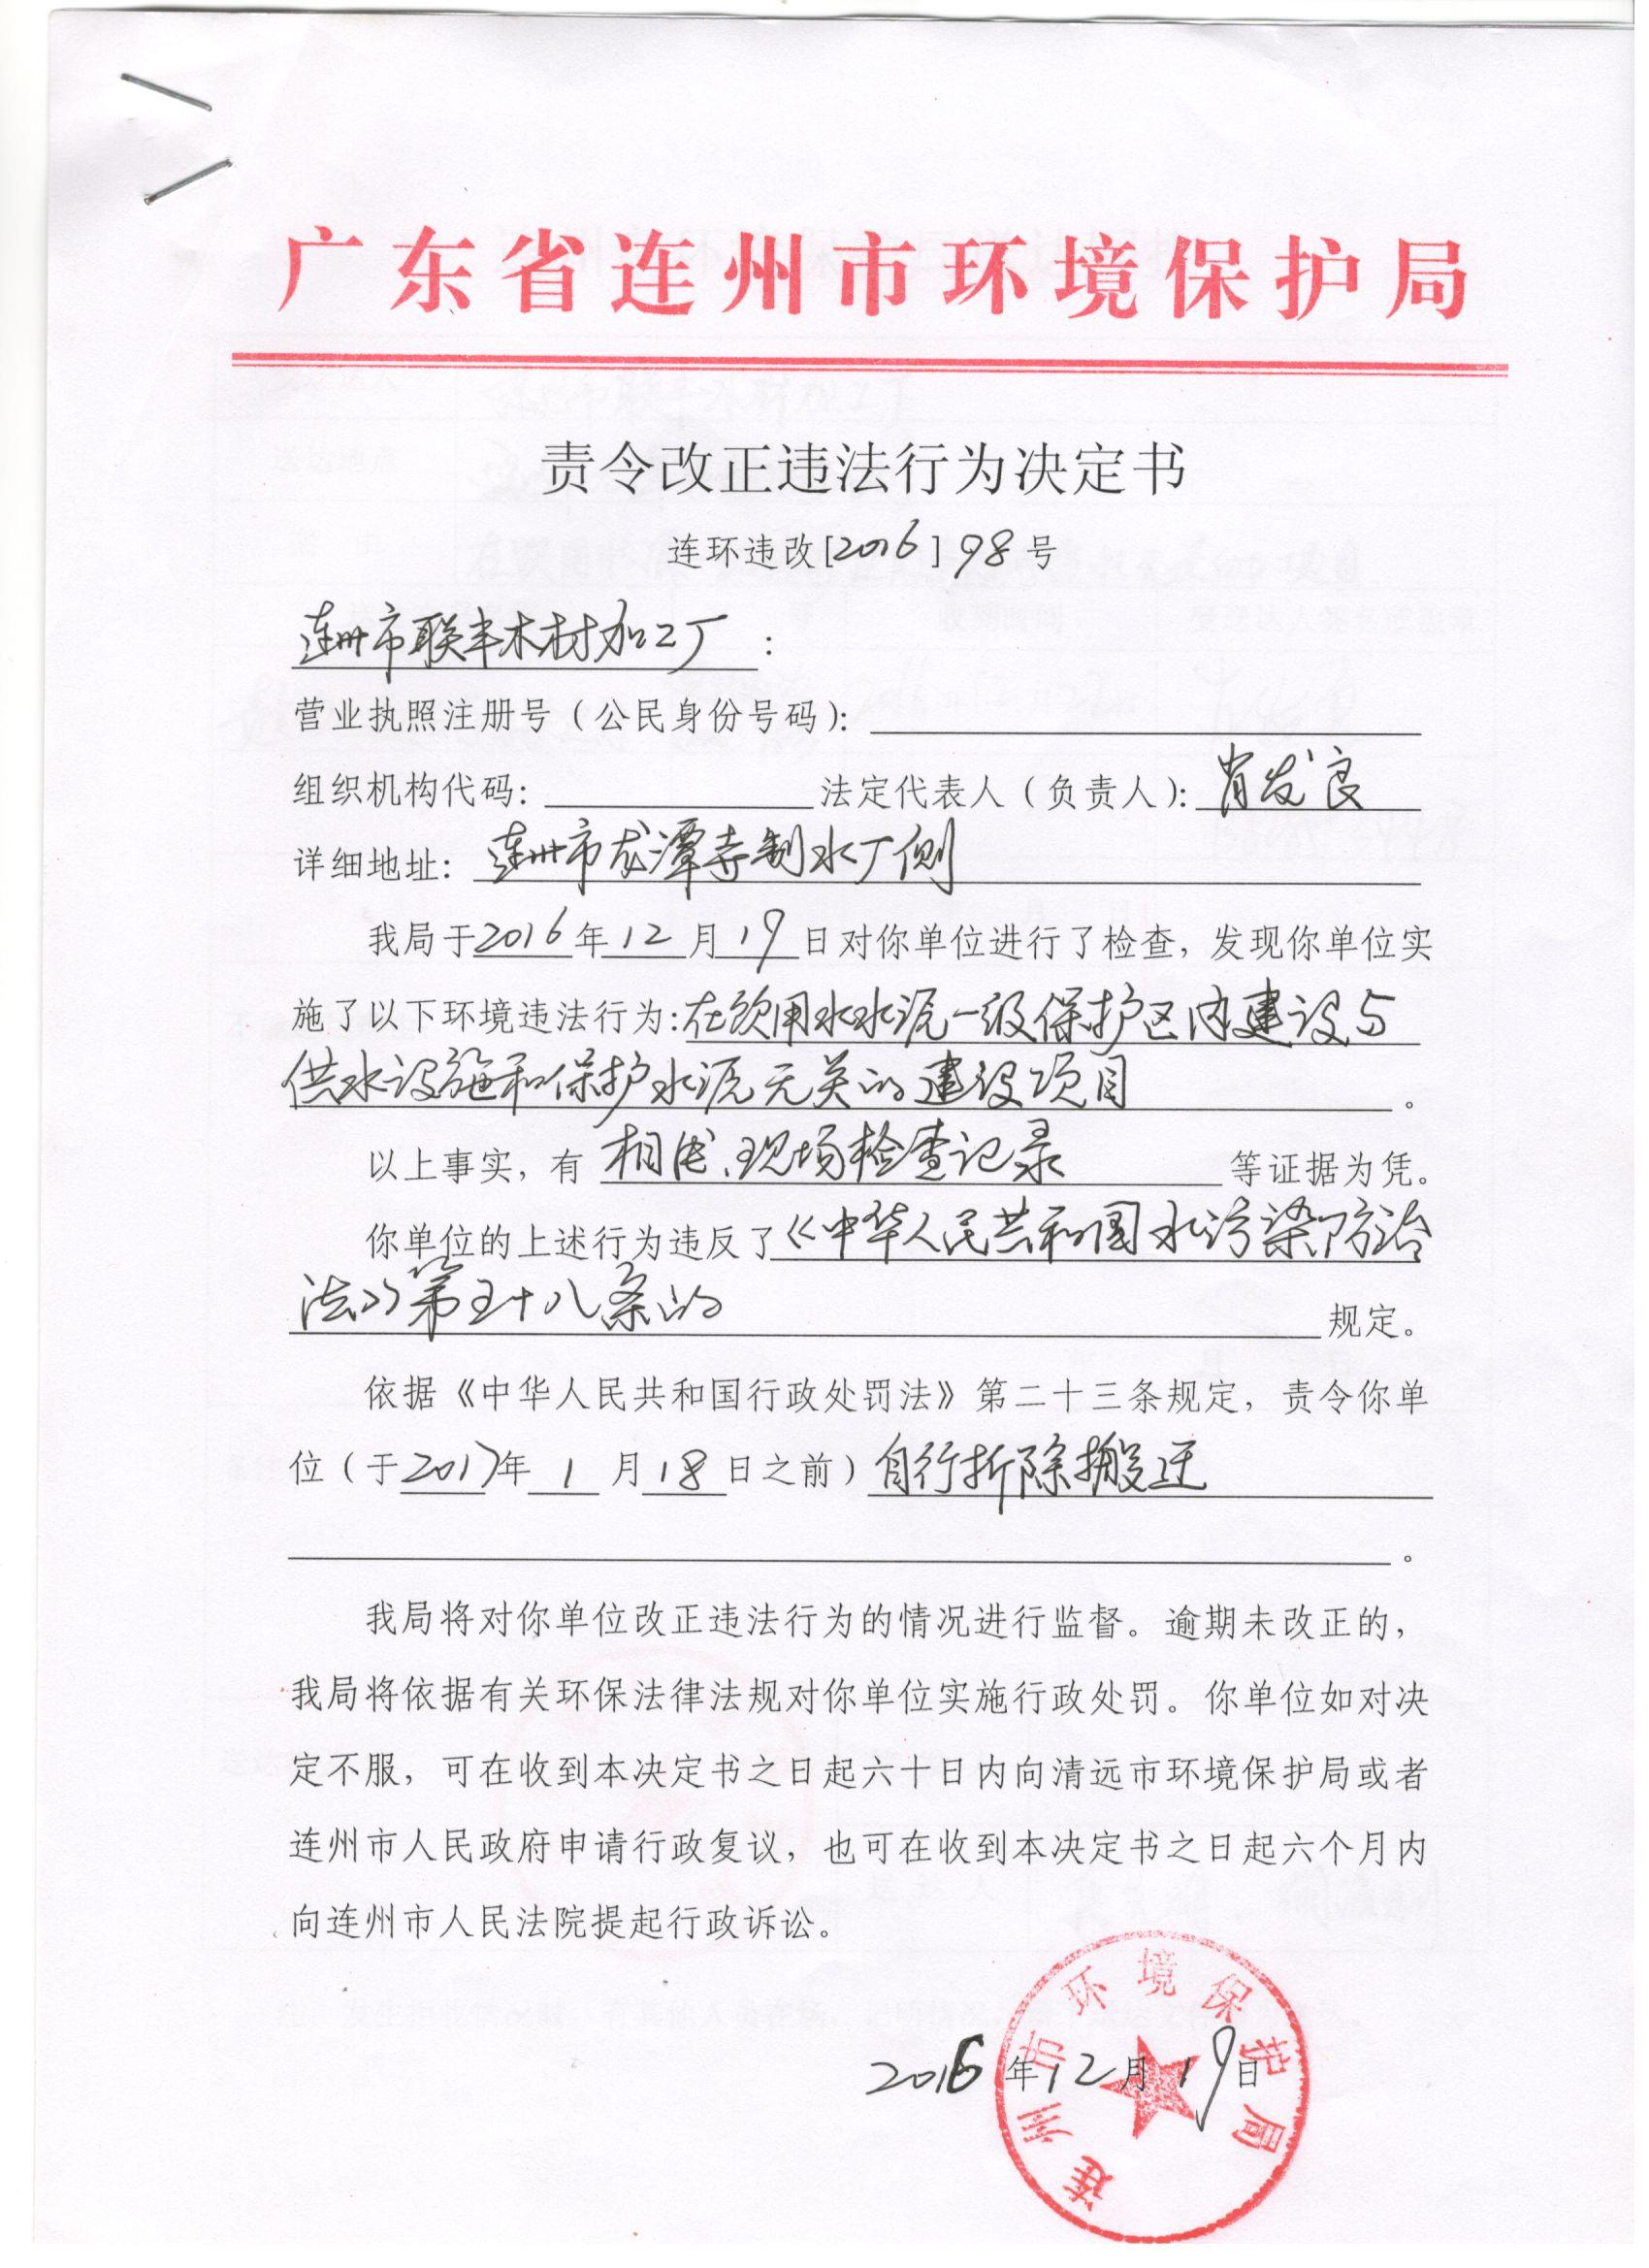 广东省连州市环境保护局
责令改正违法行为决定书
连环违改[2016]98号
连州市联丰木材加工厂：
营业执照注册号（公民身份号码）：
组织机构代码：法定代表人（负责人）：肖发良
详细地址：连州市龙潭寺制水厂侧
我局于2016年12月19日对你单位进行了检查，发现你单位实
施了以下环境违法行为：在饮用水水源一级保护区内建设与
供水设施和保护水源无关的建设项目。
以上事实，有相片、现场检查记录等证据为凭。
你单位的上述行为违反了《中华人民共和国水污染防治
法》第五十八条的规定。
依据《中华人民共和国行政处罚法》第二十三条规定，责令你单
位（于2017年1月18日之前）自行拆除搬迁
。
我局将对你单位改正违法行为的情况进行监督。逾期未改正的，
我局将依据有关环保法律法规对你单位实施行政处罚。你单位如对决
定不服，可在收到本决定书之日起六十日内向清远市环境保护局或者
连州市人民政府申请行政复议，也可在收到本决定书之日起六个月内
向连州市人民法院提起行政诉讼。
2016年12月19日
连州市环境保护局